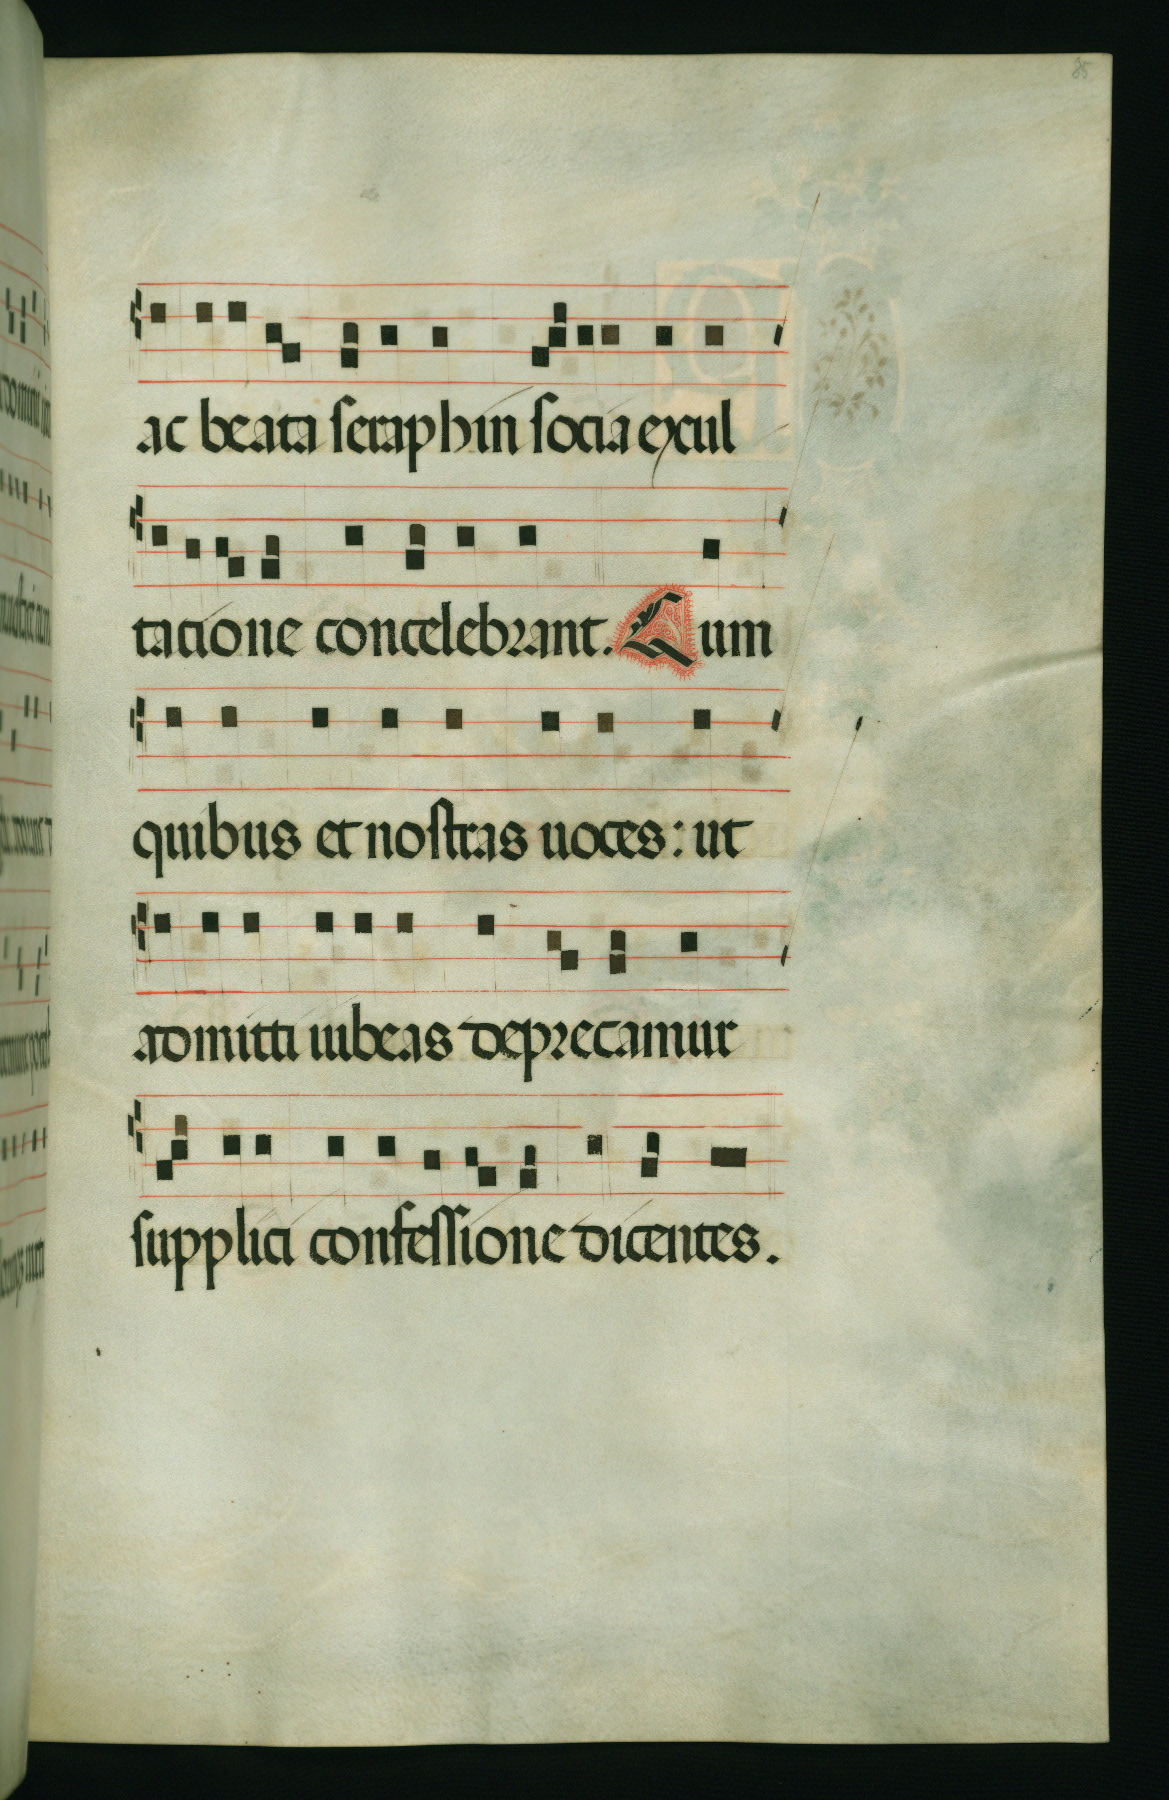 85
ac beata seraphin socia exul
tacione concelebrant. Cum
quibus et nostras uoces: ut
admitti iubeas deprecamur
supplici confessione dicentes.